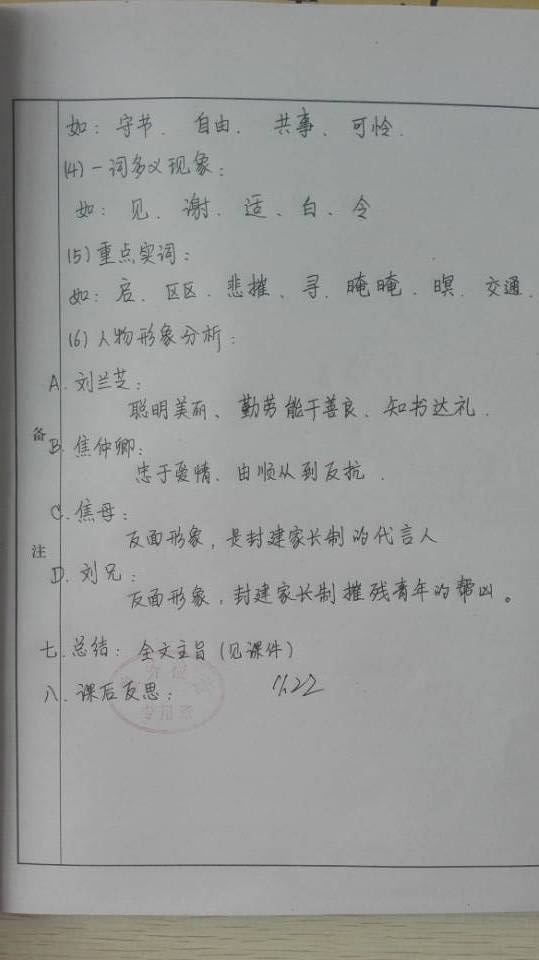 如：守节、自由、共事、可怜.
(4)一词多义现象：
如：见、谢、适、白、令
(5)重点实词：
如：启、区区、悲摧、寻、晻晻、暝、交通.
(6)人物形象分析：
A. 刘兰芝：
聪明美丽、勤劳能干善良、知书达礼.
备
B. 焦仲卿：
忠于爱情、由顺从到反抗.
C. 焦母：
反面形象，是封建家长制的代言人
注
D. 刘兄：
反面形象，封建家长制摧残青年的帮凶。
七.总结：全文主旨(见课件)
八.课后反思：
11.22